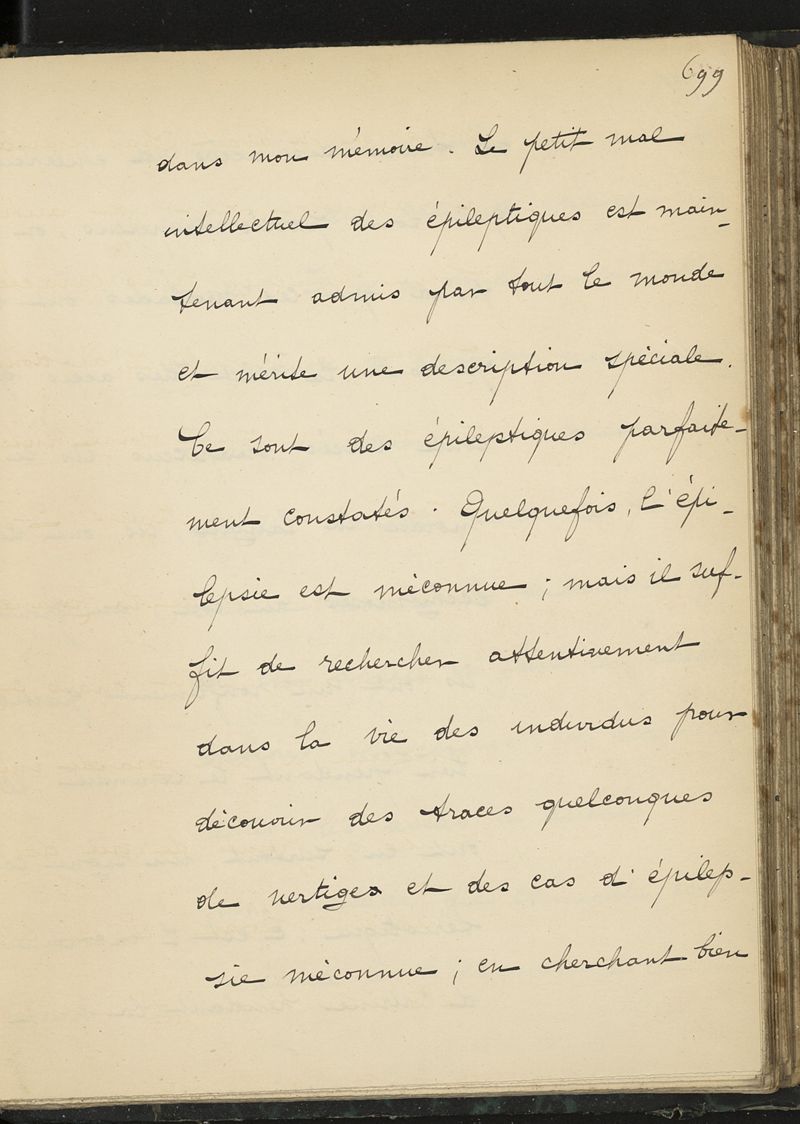 699
dans mon mémoire. Le petit mal
intellectuel des épileptiques est main-
tenant admis par tout le monde
et mérite une description spéciale.
Ce sont des épileptiques parfaite-
ment constatés. Quelquefois, l'épi-
lepsie est méconnue ; mais il suf-
fit de rechercher attentivement
dans la vie des individus pour
découvrir des traces quelconques
de vertiges et des cas d'épilep-
sie méconnue ; en cherchant bien